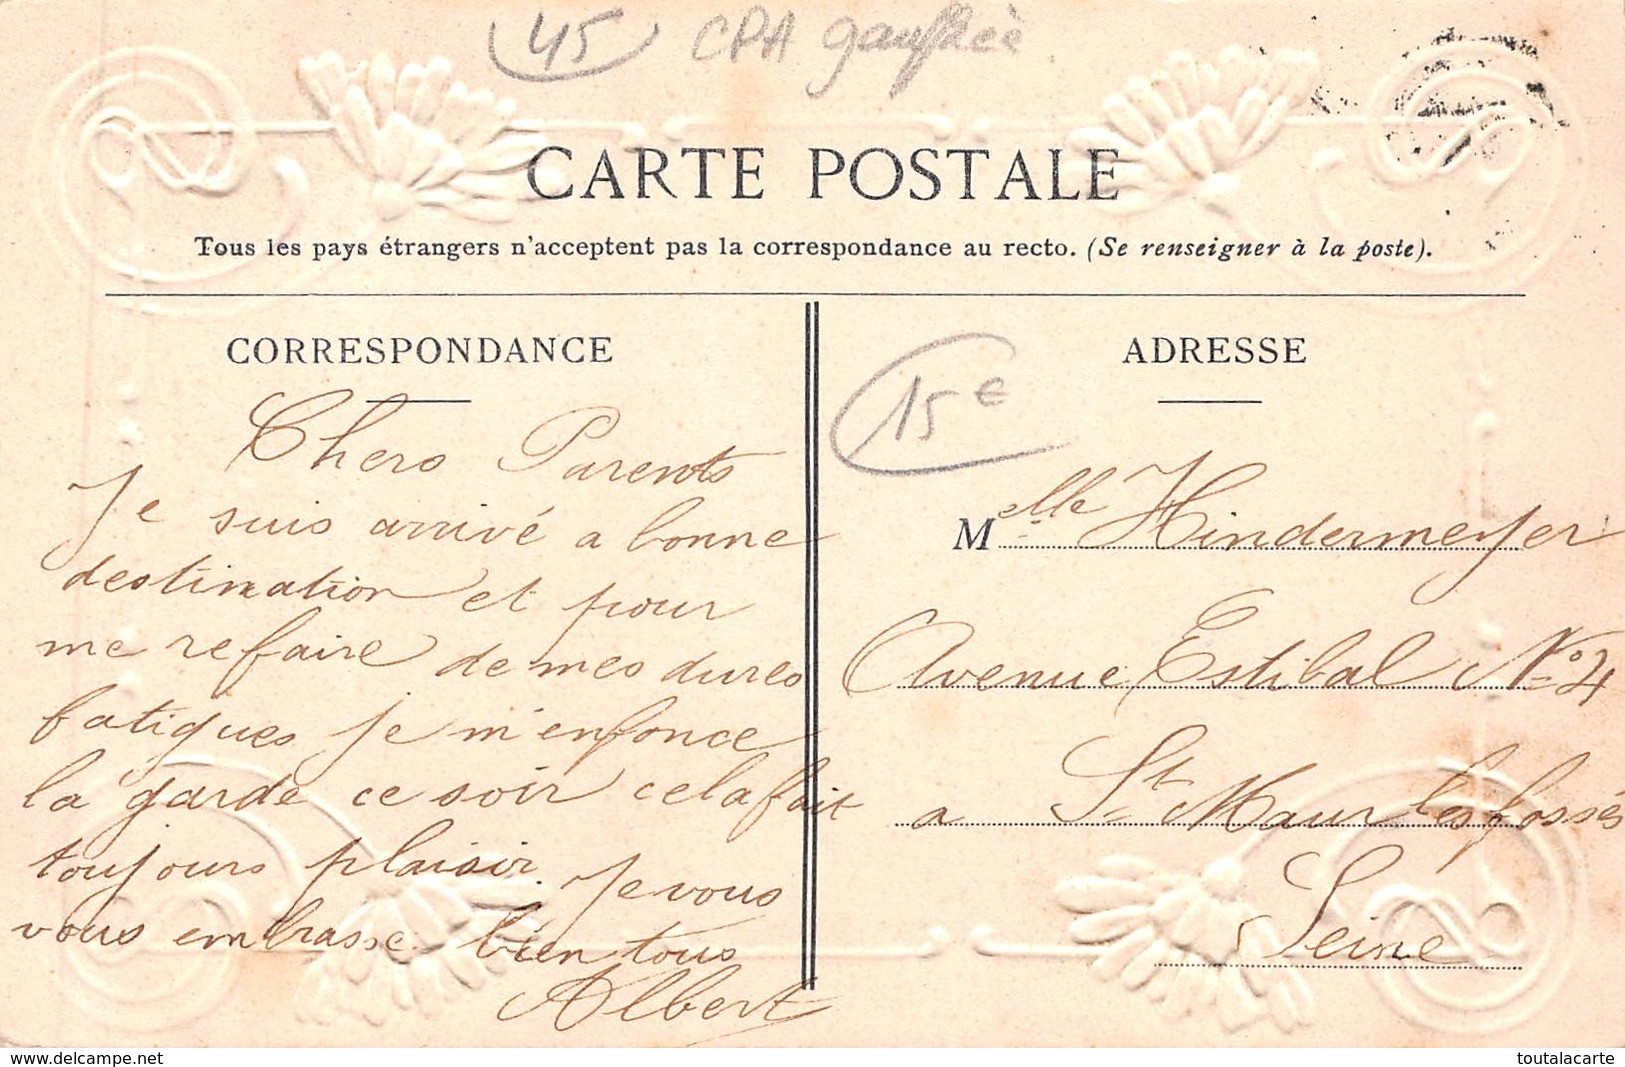 45 CPA gaufrée
CARTE POSTALE
Tous les pays étrangers n'acceptent pas la correspondance au recto. (Se renseigner à la poste).
CORRESPONDANCE
Chers Parents
Je suis arrivé a bonne
destination et pour
me refaire de mes dures
fatigues je m'enfonce
la garde ce soir cela fait
toujours plaisir. Je vous
vous embrasse bien tous
Albert
ADRESSE
15€
Melle Hindermeyer
Avenue Estibal No 4
a St Maur les fossés
Seine
www.delcampe.net
toutalacarte